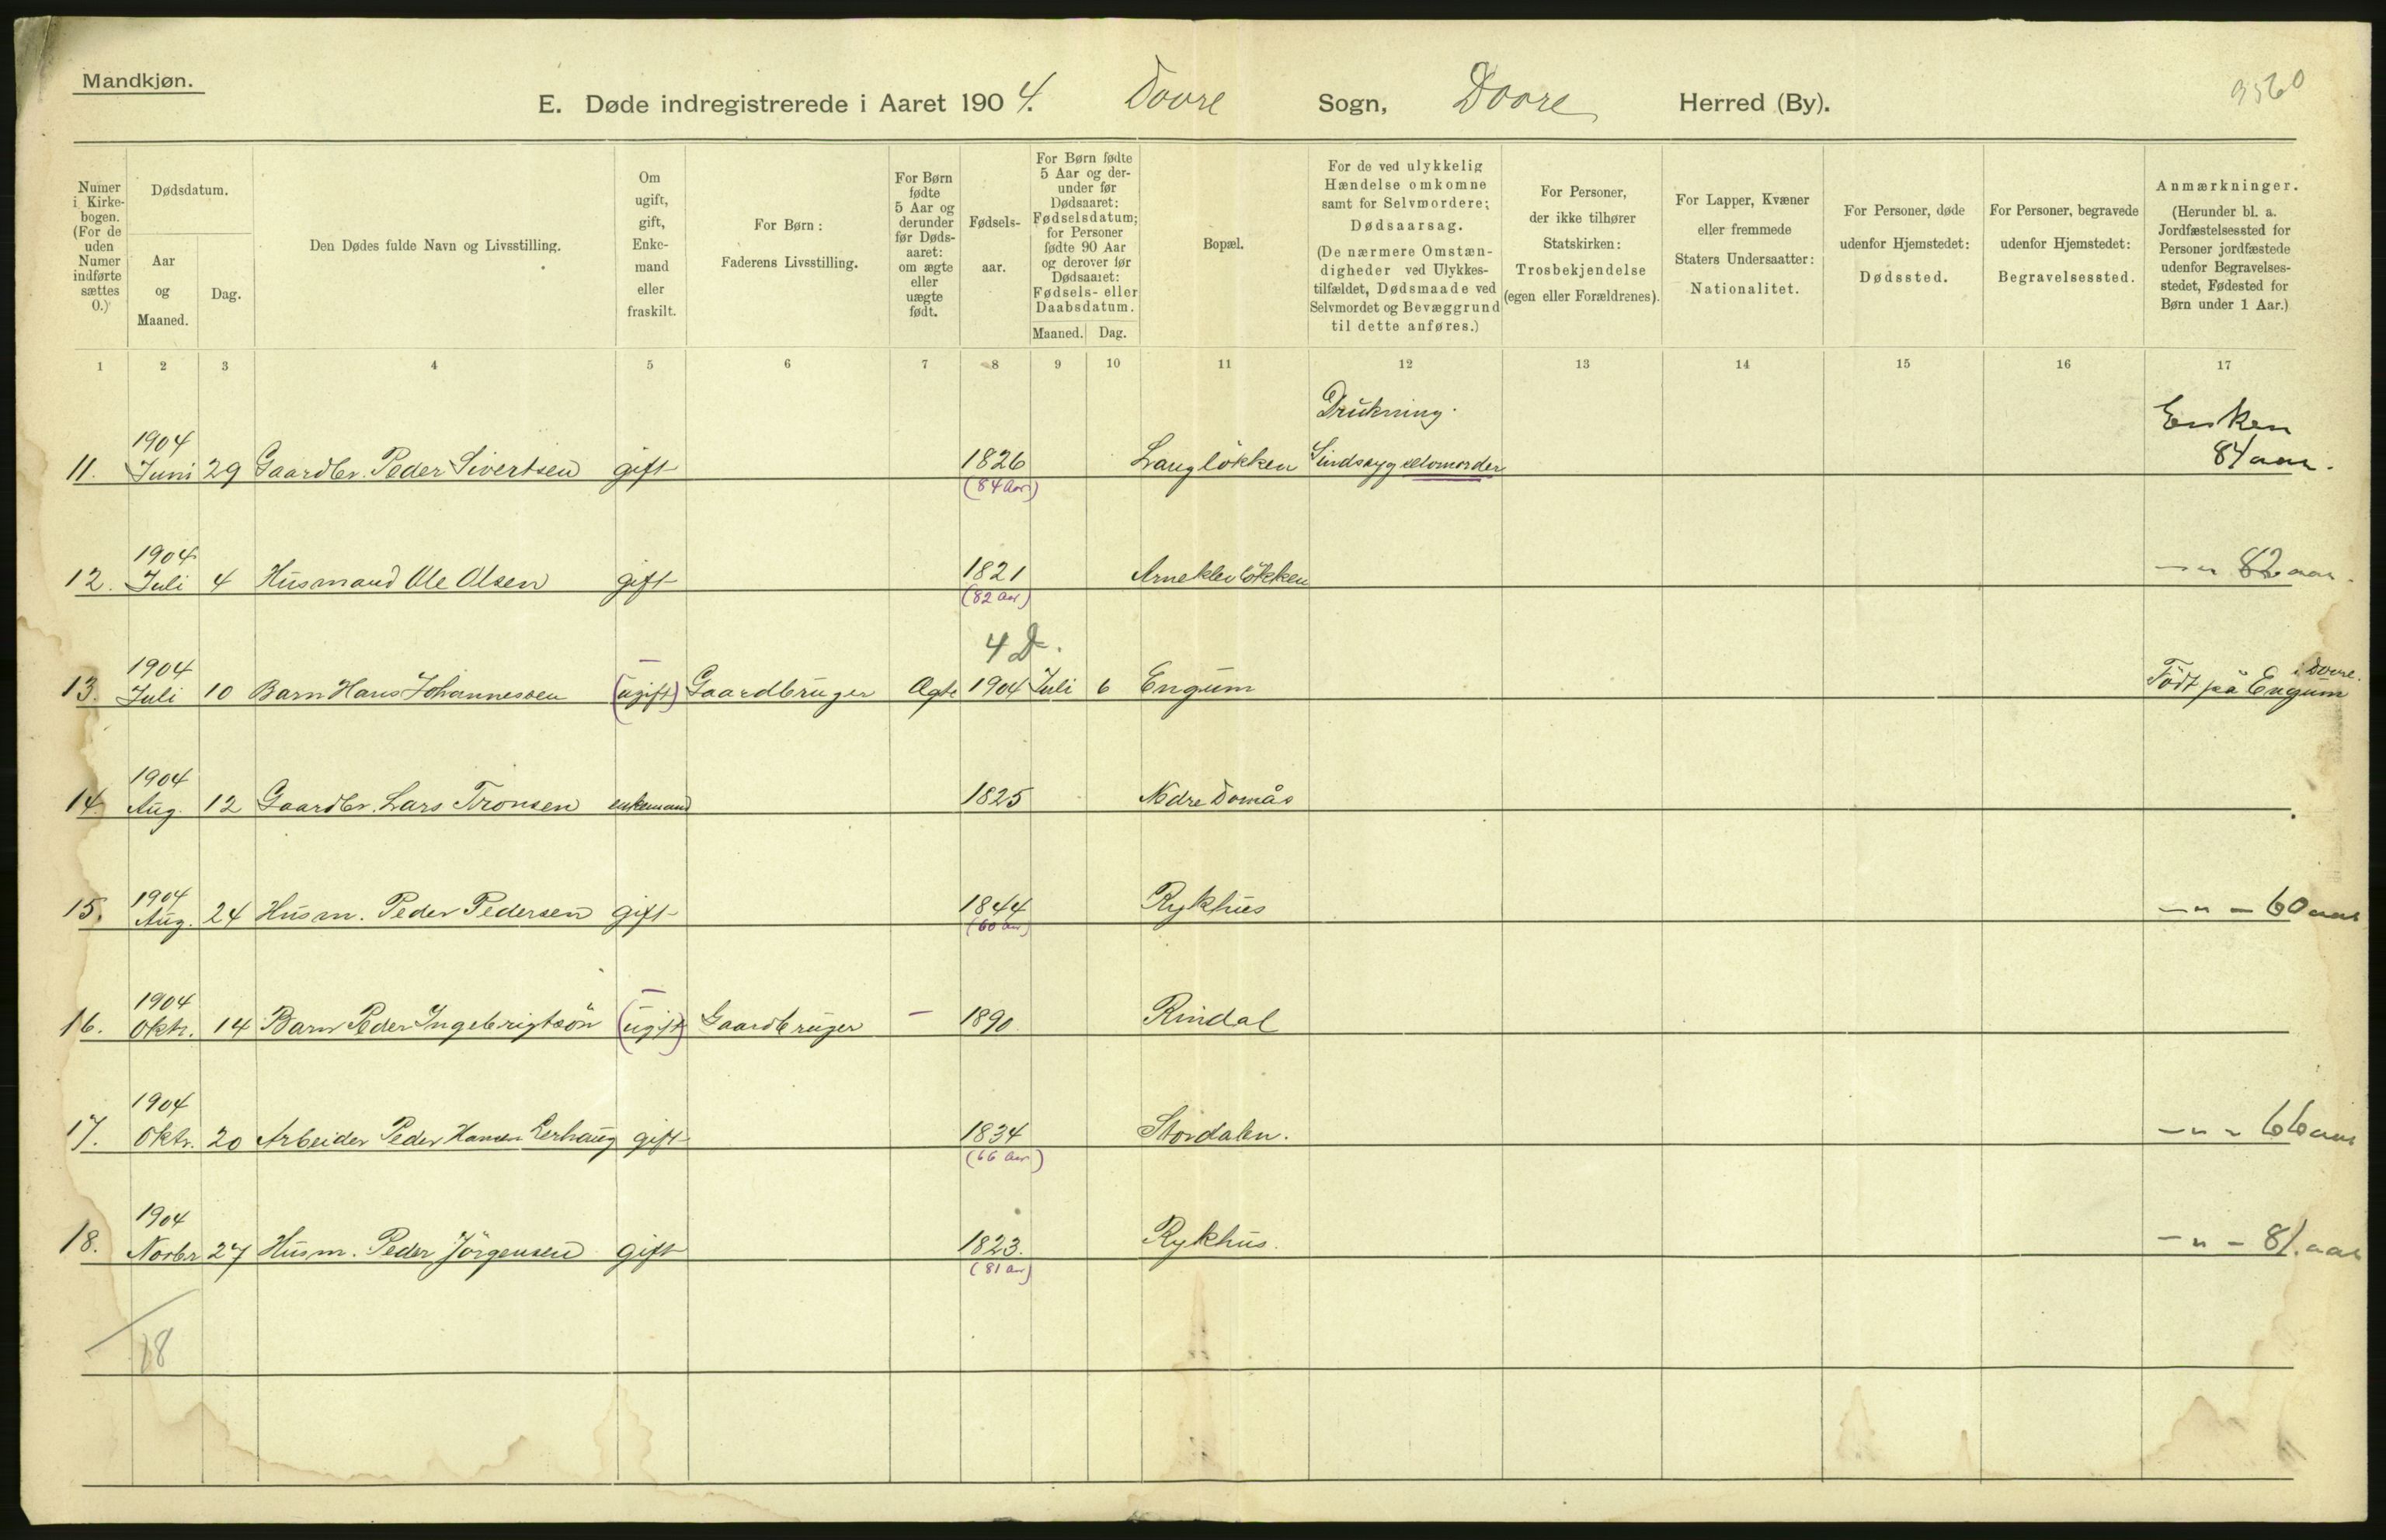 Mandkjøn.
E. Døde indregistrerede i Aaret 1904. Dovre Sogn, Dovre Herred (By).
Numer i Kirke-bogen. (For de uden Numer indførte sættes 0.)
Dødsdatum.
Aar og Maaned.
Dag.
Den Dødes fulde Navn og Livsstilling.
Om ugift, gift, Enke-mand eller fraskilt.
For Børn: Faderens Livsstilling.
For Børn fødte 5 Aar og derunder før Døds-aaret: om ægte eller uægte født.
Fødsels-aar.
For Børn fødte 5 Aar og der-under før Dødsaaret: Fødselsdatum; for Personer fødte 90 Aar og derover før Dødsaaret: Fødsels- eller Daabsdatum.
Maaned. Dag.
Bopæl.
For de ved ulykkelig Hændelse omkomne samt for Selvmordere; Dødsaarsag. (De nærmere Omstæn-digheder ved Ulykkes-tilfældet, Dødsmaade ved Selvmordet og Bevæggrund til dette anføres.)
For Personer, der ikke tilhører Statskirken: Trosbekjendelse (egen eller Forældrenes).
For Lapper, Kvæner eller fremmede Staters Undersaatter: Nationalitet.
For Personer, døde udenfor Hjemstedet: Dødssted.
For Personer, begravede udenfor Hjemstedet: Begravelsessted.
Anmærkninger. (Herunder bl. a. Jordfæstelsessted for Personer jordfæstede udenfor Begravelses-stedet, Fødested for Børn under 1 Aar.)
1 2 3 4 5 6 7 8 9 10 11 12 13 14 15 16 17
Drukning. Enken
1904
11. Juni 29 Gaardbr. Peder Sivertsen gift 1826 Langløkken Sindssyg selvmorder 84 aar.
(84 Aar)
1904
12. Juli 4 Husmand Ole Olsen gift 1821 Arneklevløkken — " 82 aar.
(82 Aar)
4 D.
1904 i Dovre.
13. Juli 10 Barn Hans Johannesen (ugift) Gaardbruger Ægte 1904 Juli 6 Engum Født på Engum
1904
14. Aug. 12 Gaardbr. Lars Tronsen enkemand 1825 Nedre Domås
1904
15. Aug. 24 Husm. Peder Pedersen gift 1844 Rykhus — " — 60 aar
(60 Aar)
1904
16. Oktr. 14 Barn Peder Ingebrigtsön (ugift) Gaardbruger — 1890 Rindal
1904
17. Oktr. 20 Arbeider Peder Hansen gift 1834 Stordalen. — " — 66 aar
(66 Aar)
1904
18. Novbr 27 Husm. Peder Jörgensen gift 1823. Rykhus. — " — 81. aar
(81 Aar)
18